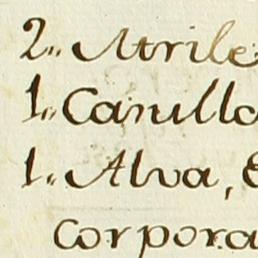 2,, Atrile
1,, Canulla
1,, Alva, 
corpora